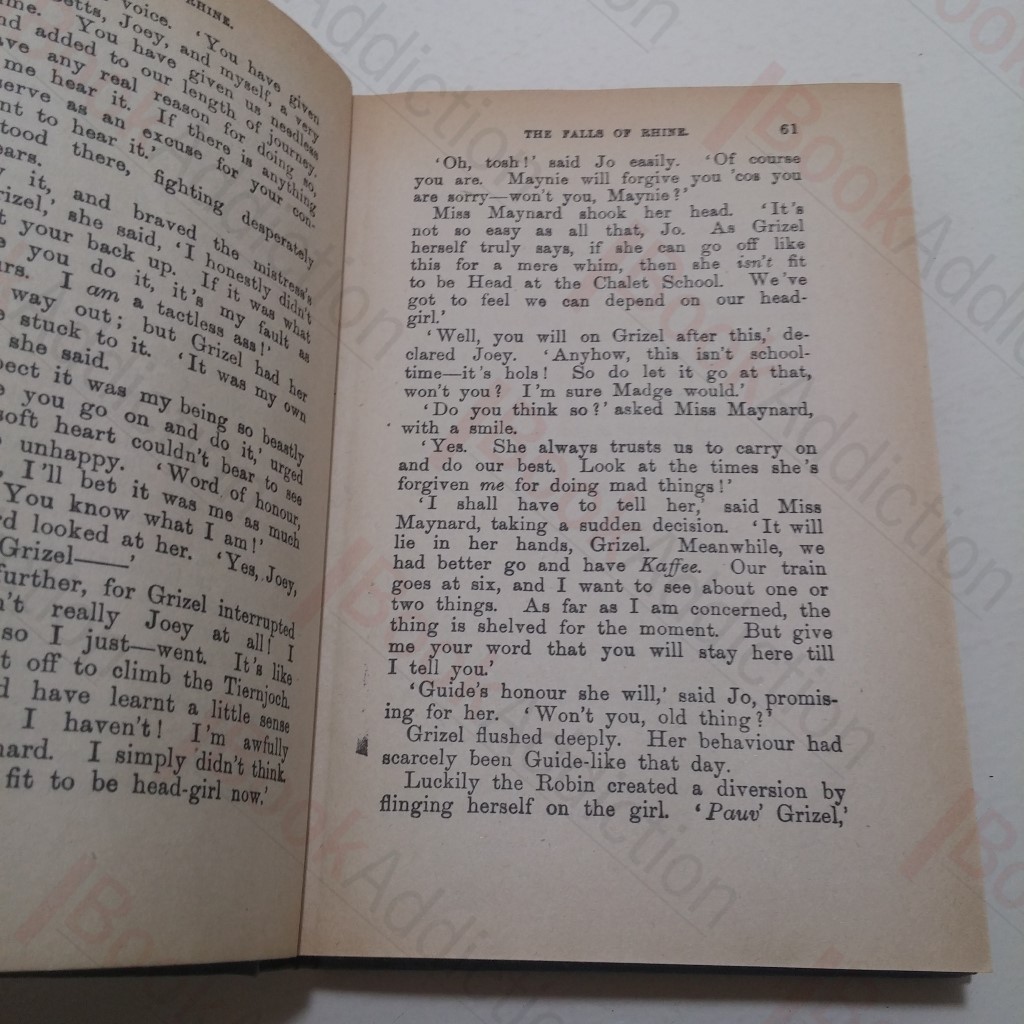 RHINE.
voice. 'You have given
etts, Joey, and myself, a very
me. You have given us needless
nd added to our length of journey.
ave any real reason for doing so,
me hear it. If there is anything
serve as an excuse for your con-
nt to hear it.'
tood there, fighting desperately
ears.
it, and braved the mistress's
rizel,' she said, 'I honestly didn't
t your back up. If it was what
e you do it, it's my fault as
urs. I am a tactless ass!'
way out; but Grizel had her
e stuck to it. 'It was my own
she said.
pect it was my being so beastly
e you go on and do it,' urged
soft heart couldn't bear to see
unhappy. 'Word of honour,
, I'll bet it was me as much
You know what I am!'
rd looked at her. 'Yes, Joey,
Grizel——'
further, for Grizel interrupted
n't really Joey at all! I
so I just—went. It's like
t off to climb the Tiernjoch.
d have learnt a little sense
I haven't! I'm awfully
nard. I simply didn't think
fit to be head-girl now.'
THE FALLS OF RHINE. 61
'Oh, tosh!' said Jo easily. 'Of course
you are. Maynie will forgive you 'cos you
are sorry—won't you, Maynie?'
Miss Maynard shook her head. 'It's
not so easy as all that, Jo. As Grizel
herself truly says, if she can go off like
this for a mere whim, then she isn't fit
to be Head at the Chalet School. We've
got to feel we can depend on our head-
girl.'
'Well, you will on Grizel after this,' de-
clared Joey. 'Anyhow, this isn't school-
time—it's hols! So do let it go at that,
won't you? I'm sure Madge would.'
'Do you think so?' asked Miss Maynard,
with a smile.
'Yes. She always trusts us to carry on
and do our best. Look at the times she's
forgiven me for doing mad things!'
'I shall have to tell her,' said Miss
Maynard, taking a sudden decision. 'It will
lie in her hands, Grizel. Meanwhile, we
had better go and have Kaffee. Our train
goes at six, and I want to see about one or
two things. As far as I am concerned, the
thing is shelved for the moment. But give
me your word that you will stay here till
I tell you.'
'Guide's honour she will,' said Jo, promis-
ing for her. 'Won't you, old thing?'
Grizel flushed deeply. Her behaviour had
scarcely been Guide-like that day.
Luckily the Robin created a diversion by
flinging herself on the girl. 'Pauv' Grizel,'
BookAddiction